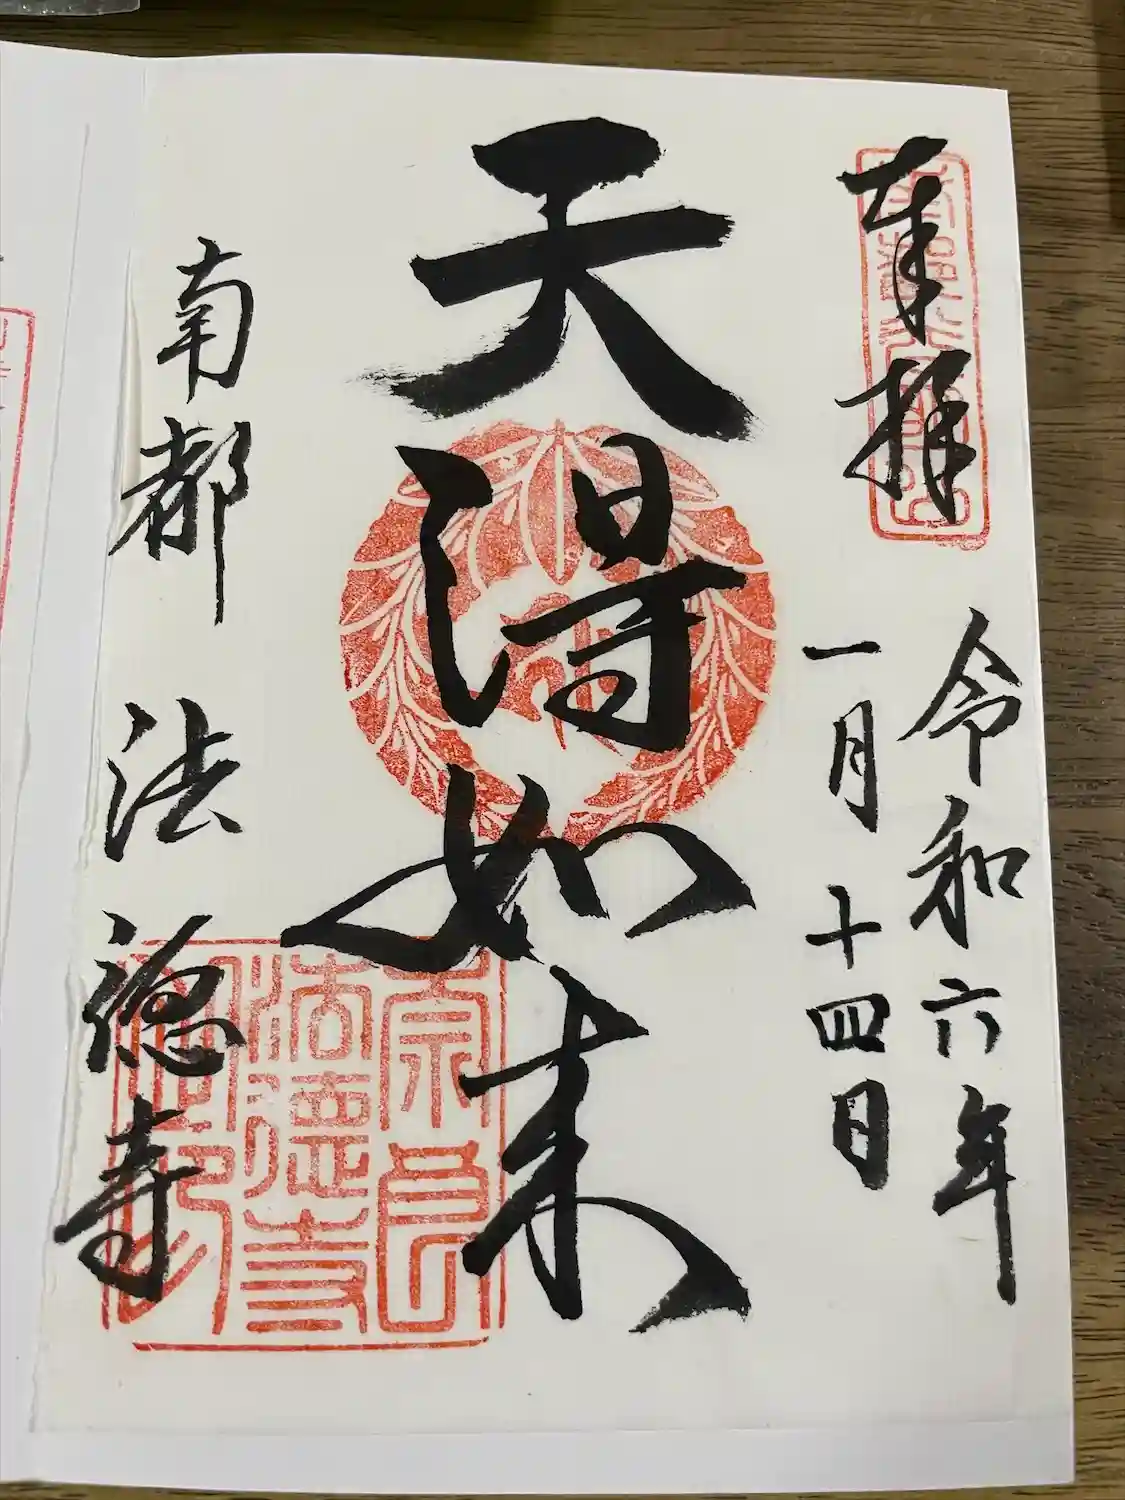 奉拝
令和六年
一月十四日
天得如来
南都 法徳寺
奈良
法德寺